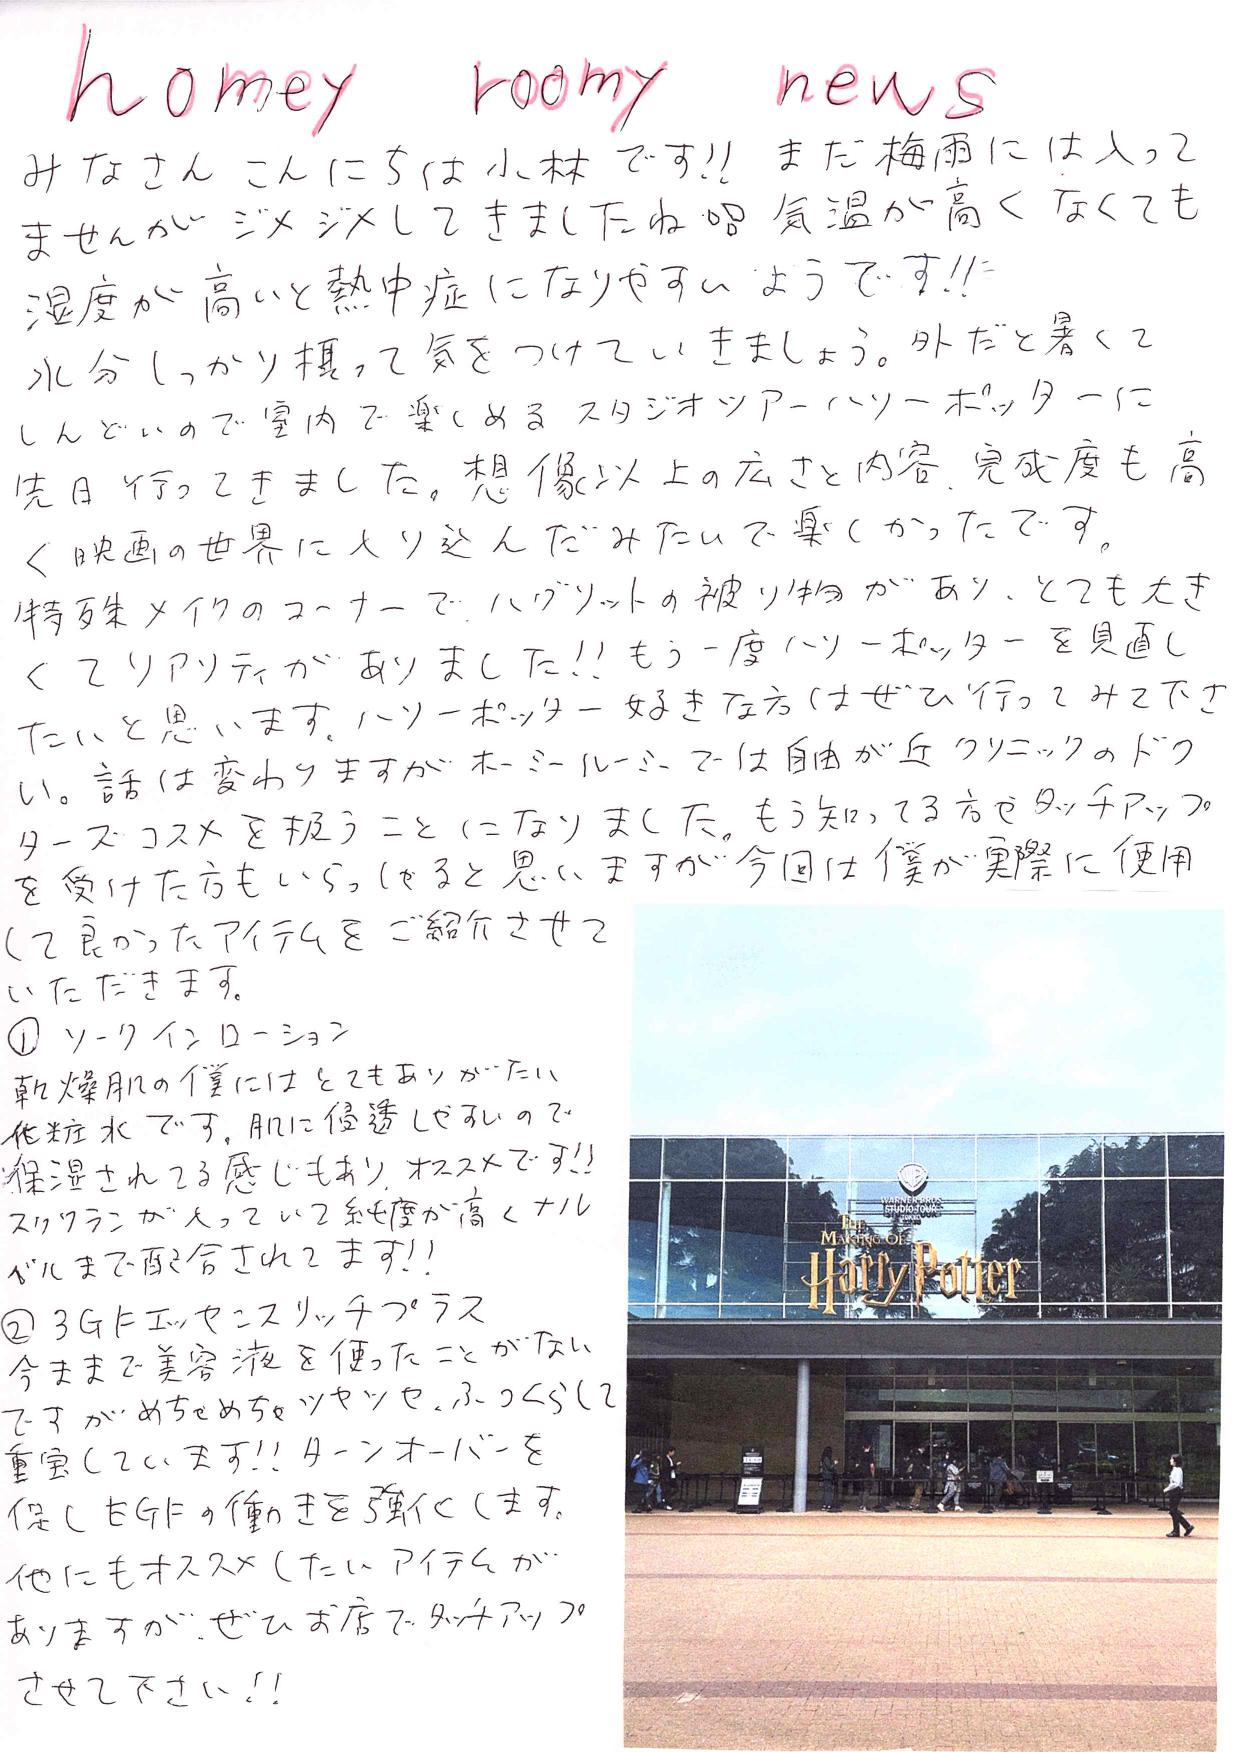 homey roomy news
みなさん こんにちは 小林 です!! まだ梅雨には入って
ませんが ジメジメしてきましたね 気温が高くなくても
湿度が高いと熱中症になりやすいようです!!
水分しっかり摂って気をつけていきましょう。外だと暑くて
しんどいので室内で楽しめるスタジオツアーハリーポッターに
先日行ってきました。想像以上の広さと内容、完成度も高
く映画の世界に入り込んだみたいで楽しかったです。
特殊メイクのコーナーで ハグリットの被り物があり、とても大き
くてリアリティがありました!! もう一度ハリーポッターを見直し
たいと思います。ハリーポッター好きな方はぜひ行ってみて下さ
い。話は変わりますがホーミールーミーでは自由が丘クリニックのドク
ターズコスメを扱うことになりました。もう知ってる方やタッチアップ
を受けた方もいらっしゃると思いますが今回は僕が実際に使用
して良かったアイテムをご紹介させて
いただきます。
① ソークインローション
乾燥肌の僕にはとてもありがたい
化粧水です。肌に浸透しやすいので
保湿されてる感じもあり、オススメです!!
スクワランが入っていて純度が高くナル
ベルまで配合されてます!!
② 3GFエッセンスリッチプラス
今ままで美容液を使ったことがない
ですがめちゃめちゃツヤツヤ、ふっくらして
重宝しています!! ターンオーバーを
促しEGFの働きを強くします。
他にもオススメしたいアイテムが
ありますが、ぜひお店でタッチアップ
させて下さい!!
WARNER BROS.
STUDIO TOUR
TOKYO
THE
MAKING OF
Harry Potter